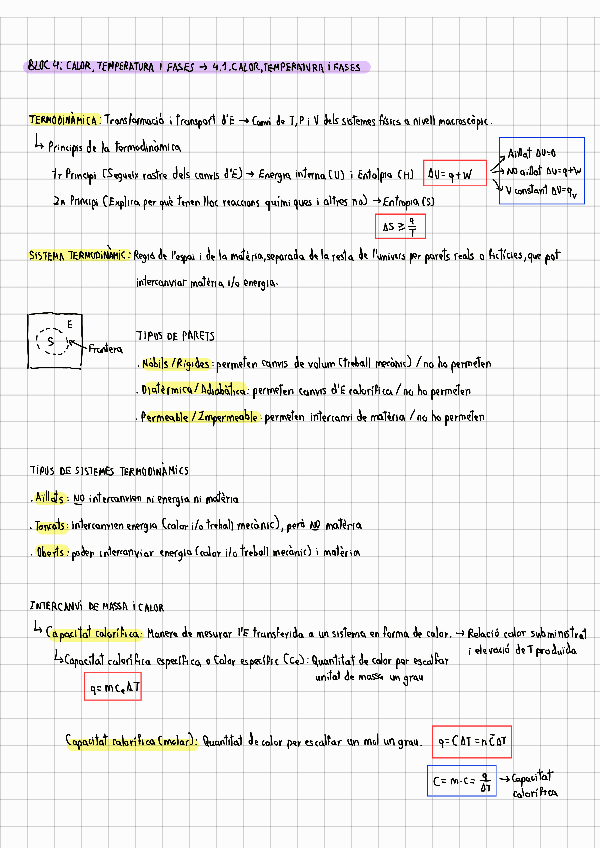 BLOC 4. CALOR, TEMPERATURA I FASES → 4.1. CALOR, TEMPERATURA I FASES
TERMODINÀMICA: Transformació i transport d'E → Canvi de T, P i V dels sistemes físics a nivell macroscòpic.
↳ Principis de la termodinàmica
1r Principi (Segueix rastre dels canvis d'E) → Energia interna (U) i Entalpia (H) ΔU = q + W
Aïllat ΔU=0
NO aïllat ΔU=q+W
V constant ΔU=qv
2n Principi (Explica per què tenen lloc reaccions químiques i altres no) → Entropia (S)
ΔS ≥ q/T
SISTEMA TERMODINÀMIC: Regió de l'espai i de la matèria, separada de la resta de l'univers per parets reals o fictícies, que pot
intercanviar matèria i/o energia.
E
S
Frontera
TIPUS DE PARETS
. Mòbils / Rígides: permeten canvis de volum (treball mecànic) / no ho permeten
. Diatèrmica / Adiabàtica: permeten canvis d'E calorífica / no ho permeten
. Permeable / Impermeable: permeten intercanvi de matèria / no ho permeten
TIPUS DE SISTEMES TERMODINÀMICS
. Aïllats: NO intercanvien ni energia ni matèria
. Tancats: intercanvien energia (calor i/o treball mecànic), però NO matèria
. Oberts: poden intercanviar energia (calor i/o treball mecànic) i matèria
INTERCANVI DE MASSA I CALOR
↳ Capacitat calorífica: Manera de mesurar l'E transferida a un sistema en forma de calor. → Relació calor subministrat
i elevació de T produïda
↳ Capacitat calorífica específica o Calor específic (Ce): Quantitat de calor per escalfar
unitat de massa un grau
q = m ce ΔT
Capacitat calorífica (molar): Quantitat de calor per escalfar un mol un grau. q = C ΔT = n C̄ ΔT
C = m·c = q/ΔT → Capacitat
calorífica